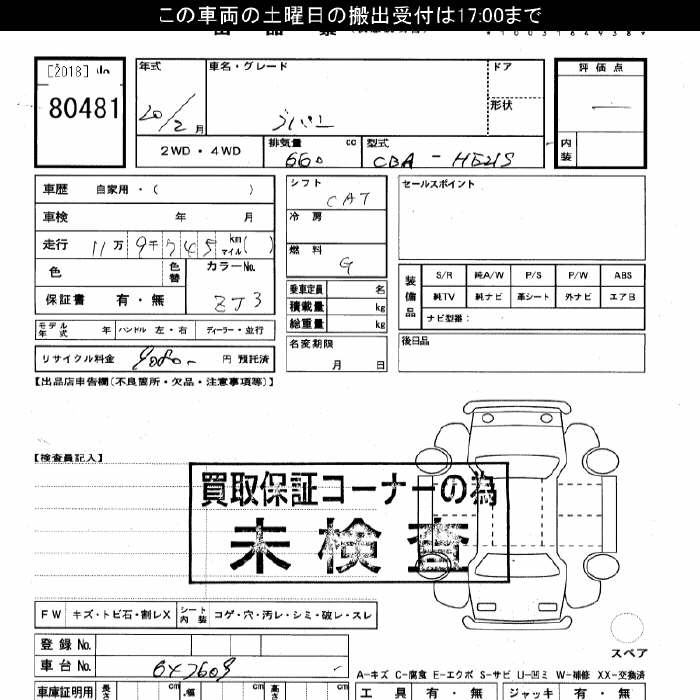 この車両の土曜日の搬出受付は17:00まで
[2018]
80481
年式
20/2月
車名・グレード
ラパン
ドア
形状
評価点
内装
2WD・4WD
排気量 660 cc
型式 CBA - HE21S
車歴 自家用・( )
車検 年 月
走行 11万9千745 km マイル( )
色 色替 カラーNo. ZJ3
保証書 有・無
シフト CAT
冷房
燃料 G
乗車定員 名
積載量 kg
総重量 kg
セールスポイント
装備品
S/R 純A/W P/S P/W ABS
純TV 純ナビ 革シート 外ナビ エアB
ナビ型番:
モデル年式 年 ハンドル 左・右 ディーラー・並行
リサイクル料金 円 預託済
名変期限 月 日
後日品
【出品店申告欄(不良箇所・欠品・注意事項等)】
【検査員記入】
買取保証コーナーの為
未検査
FW キズ・トビ石・割レX シート内装 コゲ・穴・汚レ・シミ・破レ・スレ
スペア
登録No.
車台No.
A-キズ C-腐食 E-エクボ S-サビ U-凹ミ W-補修 XX-交換済
車庫証明用 長さ cm 幅 cm 高さ cm
工具 有・無 ジャッキ 有・無